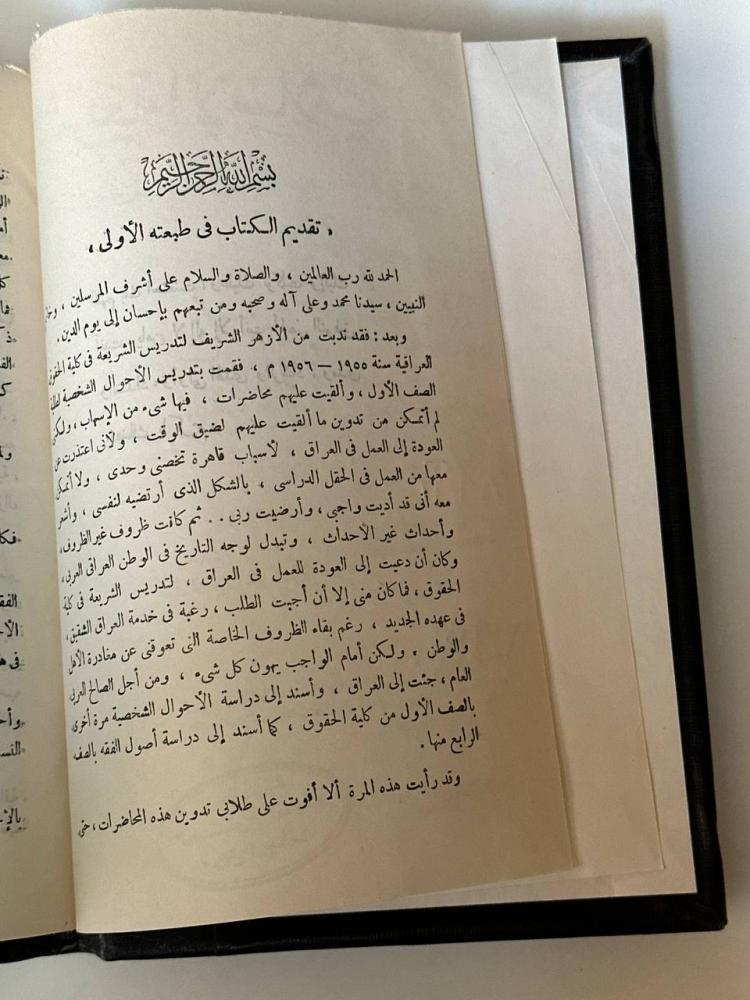 بسم الله الرحمن الرحيم
، تقديم الكتاب فى طبعته الأولى ،
الحمد لله رب العالمين ، والصلاة والسلام على أشرف المرسلين ،
النبيين ، سيدنا محمد وعلى آله وصحبه ومن تبعهم بإحسان إلى يوم الدين .
وبعد : فقد ندبت من الأزهر الشريف لتدريس الشريعة فى كلية
العراقية سنة ١٩٥٥ – ١٩٥٦ م ، فقمت بتدريس الأحوال الشخصية
الصف الأول ، وألقيت عليهم محاضرات ، فيها شىء من الإسهاب ،
لم أتمكن من تدوين ما ألقيت عليهم لضيق الوقت ، ولأنى اعتذرت عن
العودة إلى العمل فى العراق ، لأسباب قاهرة تخصنى وحدى ، ولا أتمكن
معها من العمل فى الحقل الدراسى ، بالشكل الذى أرتضيه لنفسى ،
معه أنى قد أديت واجبى ، وأرضيت ربى . . ثم كانت ظروف غير الظروف ،
وأحداث غير الأحداث ، وتبدل لوجه التاريخ فى الوطن العراقى العربى ،
وكان أن دعيت إلى العودة للعمل فى العراق ، لتدريس الشريعة فى كلية
الحقوق ، فما كان منى إلا أن أجبت الطلب ، رغبة فى خدمة العراق الشقيق ،
فى عهده الجديد ، رغم بقاء الظروف الخاصة التى تعوقنى عن مغادرة الأهل
والوطن . ولكن أمام الواجب يهون كل شىء ، ومن أجل الصالح العربى
العام ، جئت إلى العراق ، وأسند إلى دراسة الأحوال الشخصية مرة أخرى
بالصف الأول من كلية الحقوق ، كما أسند إلى دراسة أصول الفقه بالصف
الرابع منها .
وقد رأيت هذه المرة ألا أفوت على طلابى تدوين هذه المحاضرات ، حتى